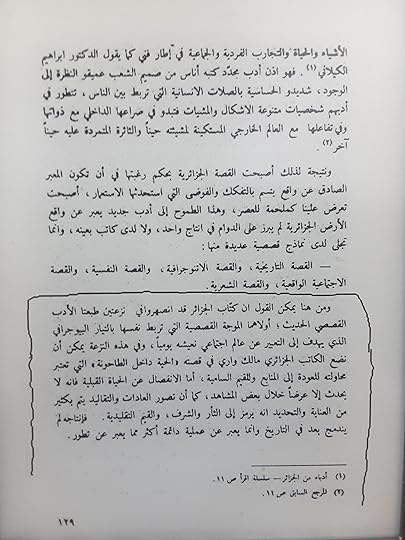 الأشياء والحياة والتجارب الفردية والجماعية في إطار فني كما يقول الدكتور ابراهيم
الكيلاني (١) . فهو اذن أدب مجدّد كتبه أناس من صميم الشعب عميقو النظرة إلى
الوجود ، شديدو الحساسية بالصلات الانسانية التي تربط بين الناس ، تتطور في
أديهم شخصيات متنوعة الاشكال والمشيات فتبدو في صراعها الداخلي مع ذواتها
وفي تفاعلها مع العالم الخارجي المستكينة لمشيئته حيناً والثائرة المتمردة عليه حيناً
آخر (٢) .
ونتيجة لذلك أصبحت القصة الجزائرية بحكم رغبتها في أن تكون المعبر
الصادق عن واقع يتسم بالتفكك والفوضى التي استحدثها الاستعمار ، أصبحت
تعرض علينا كملحمة للعصر ، وهذا الطموح إلى أدب جديد يعبر عن واقع
الأرض الجزائرية لم يبرز على الدوام في انتاج واحد ، ولا لدى كاتب بعينه ، وانما
تجلى لدى نماذج قصصية عديدة منها :
— القصة التاريخية ، والقصة الاتنوجرافية ، والقصة النفسية ، والقصة
الاجتماعية الواقعية ، والقصة الشعرية .
ومن هنا يمكن القول ان كتّاب الجزائر قد انصهروا في نزعتين طبعتا الأدب
القصصي الحديث ؛ أولاهما الموجة القصصية التي تربط نفسها بالتيار البيوجرافي
الذي يهدف إلى التعبير عن عالم اجتماعي نعيشه يومياً ، وفي هذه النزعة يمكن أن
نضع الكاتب الجزائري مالك واري في قصته «الحبة داخل الطاحونة» التي تعتبر
محاولته للعودة إلى المنابع وللقيم السامية ، أما الانفصال عن الحياة القبلية فانه لا
يحدث إلا عرضاً خلال بعض المشاهد ، كما أن تصوير العادات والتقاليد يتم بكثير
من العناية والتحديد انه يرمز إلى الثأر والشرف ، والقيم التقليدية . فإنتاجه لم
يندمج بعد في التاريخ وانما يعبر عن عملية دائمة أكثر مما يعبر عن تطور .
(١) أدباء من الجزائر – سلسلة اقرأ ص ١١ .
(٢) المرجع السابق ص ١١ .
١٢٩